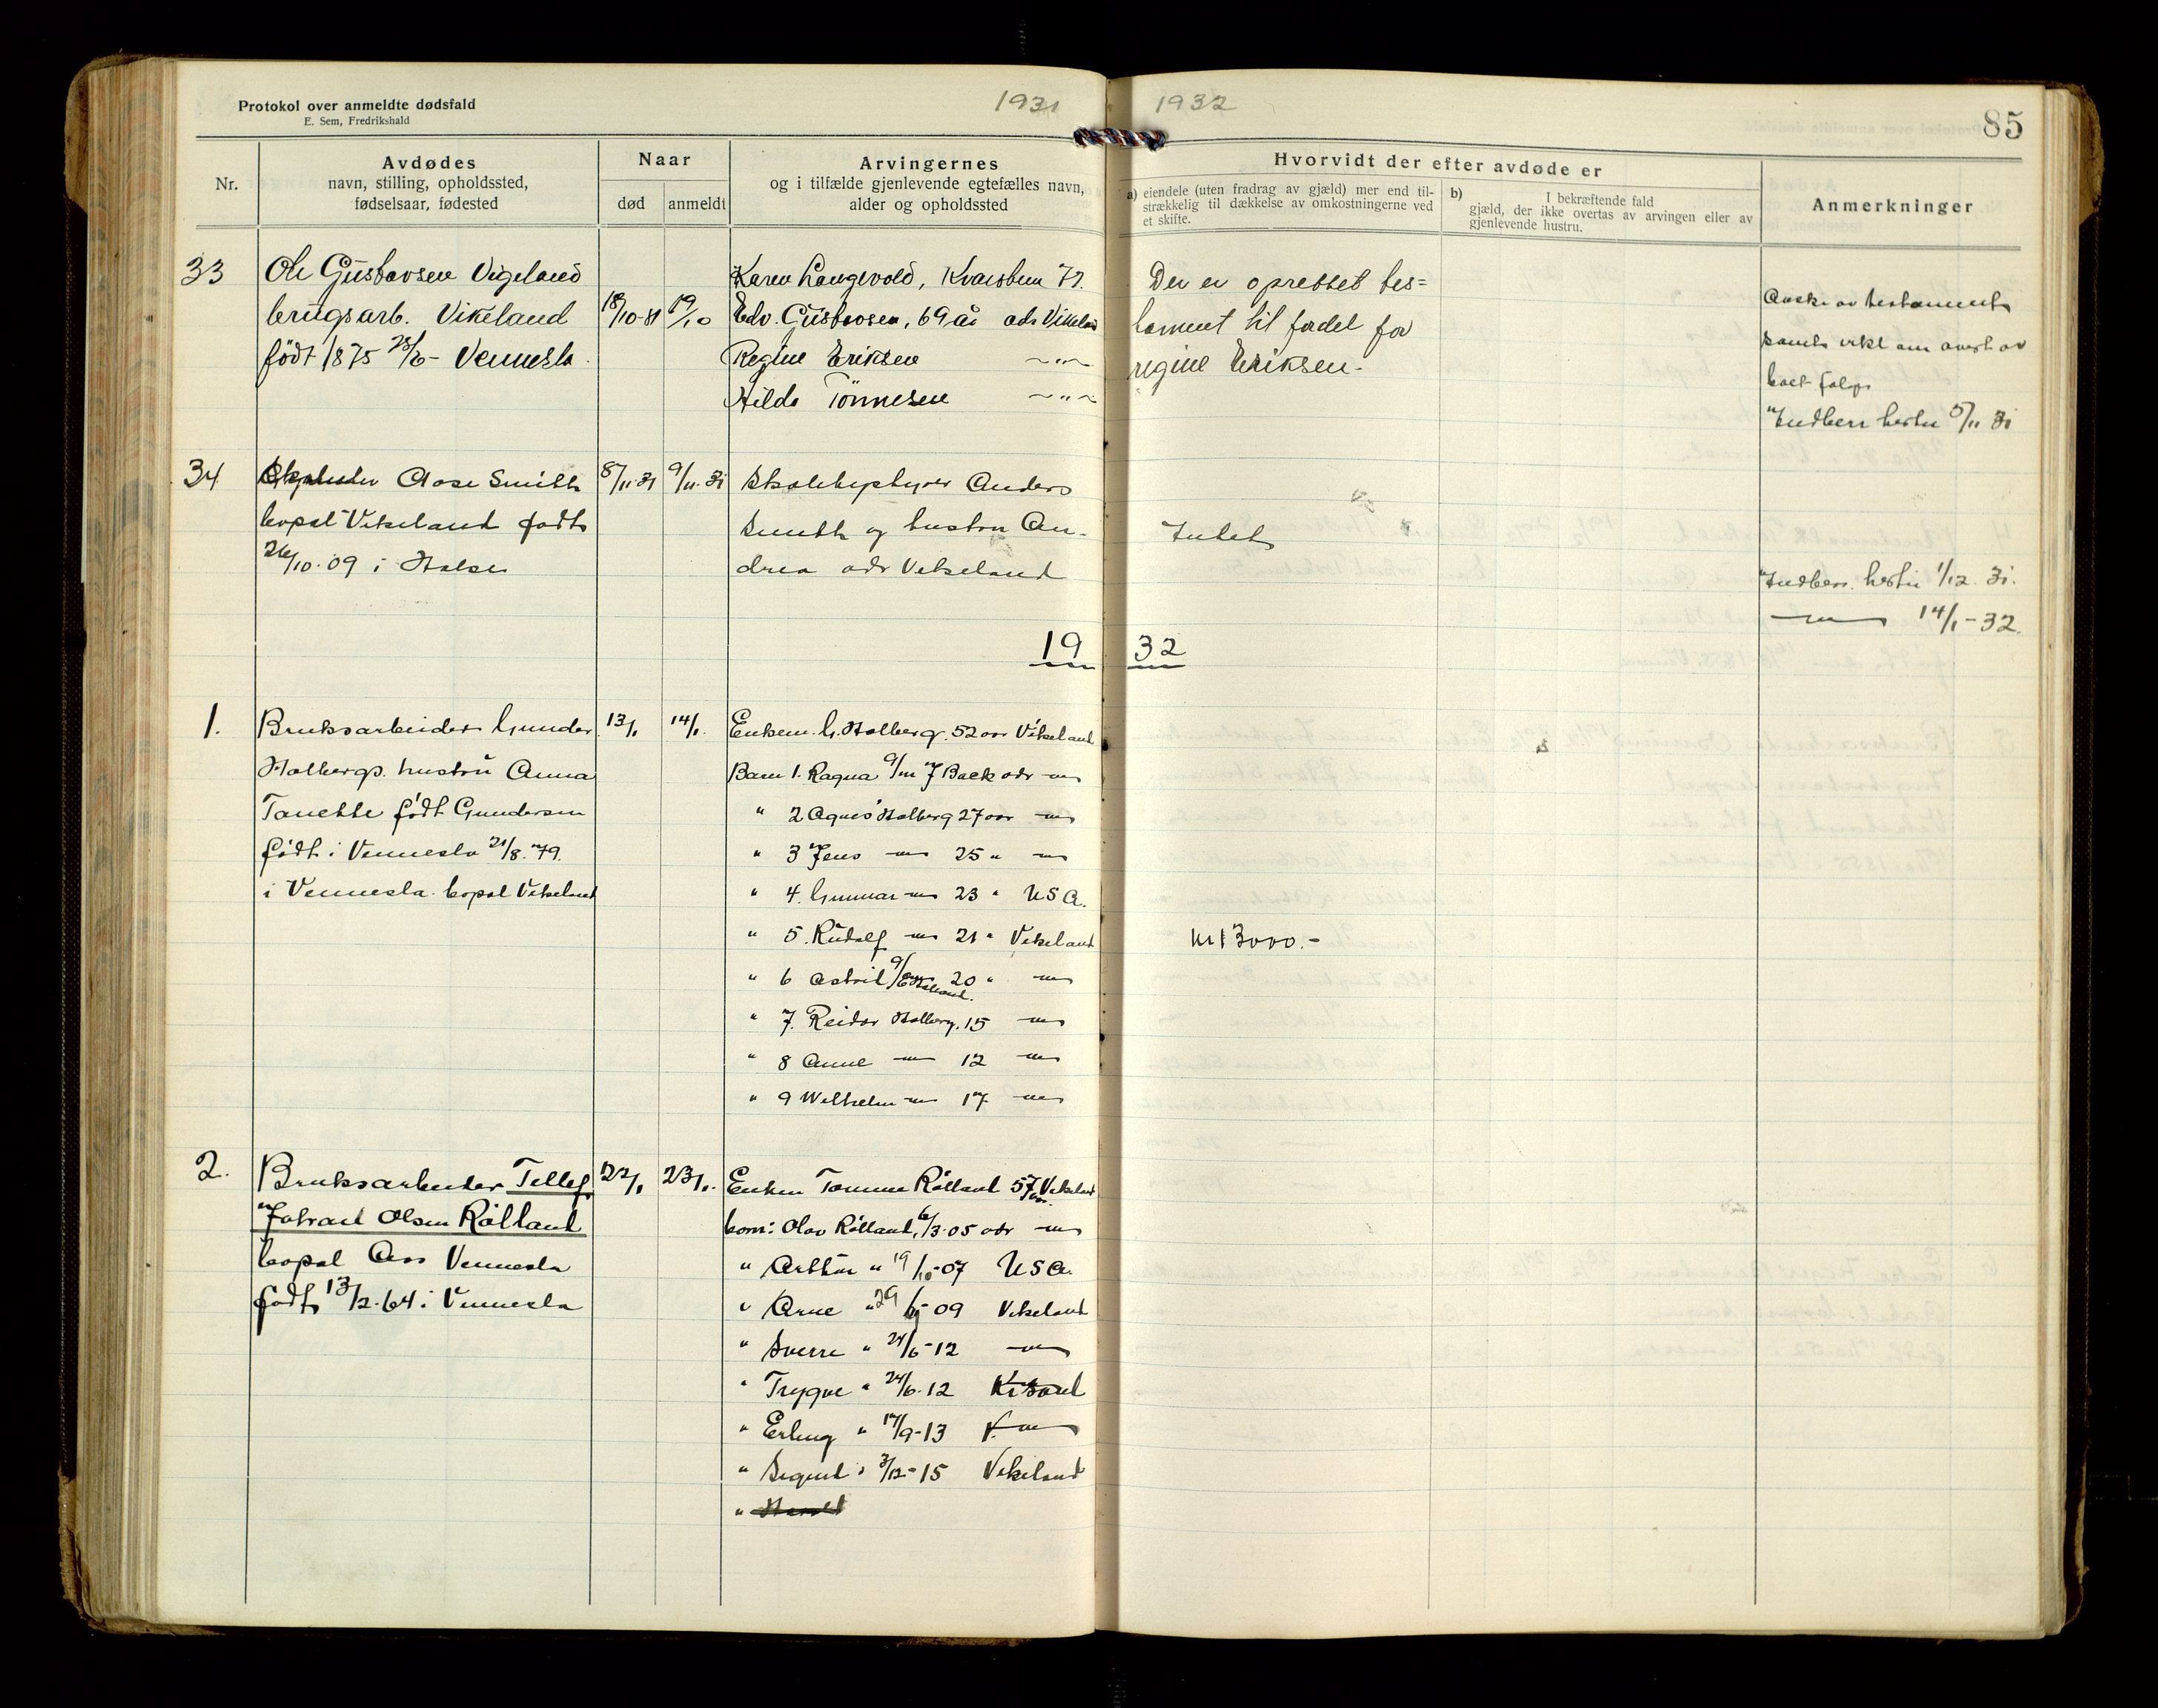 Protokol over anmeldte dødsfald
E. Sem, Fredrikshald
1931
1932
85
Nr.
Avdødes
navn, stilling, opholdssted,
fødselsaar, fødested
Naar
død
anmeldt
Arvingernes
og i tilfælde gjenlevende egtefælles navn,
alder og opholdssted
Hvorvidt der efter avdøde er
a) eiendele (uten fradrag av gjæld) mer end til-
strækkelig til dækkelse av omkostningerne ved
et skifte.
b) I bekræftende fald
gjæld, der ikke overtas av arvingen eller av
gjenlevende hustru.
Anmerkninger
33
Ole Gustavsen Vigeland
brugsarb. Vikeland
født 1875 Vennesla
18/10-31
19/10
Karen Langevold,
Edv. Gustavsen, 69 år adr Vikeland
Regine Eriksen — " —
Hilda Tönnesen — " —
Der er oprettet tes=
tament til fordel for
regine Eriksen.
av testament
samt erkl om overt av
boet følge
Indberr herfra 5/11 31
34
Aase Smith
bopæl Vikeland født
26/10-09 i Halse
8/11-31
9/11-31
Skolebestyrer Anders
Smith og hustru An-
drea adr Vikeland
Intet
Indberr. herfra 1/12. 31.
— " — 14/1-32.
19 32
1.
Bruksarbeider Gunder
Holbergs hustru Anna
Tanette født Gundersen
født i Vennesla 21/8.79.
i Vennesla bopæl Vikeland
13/1
14/1.
Enkem. G. Holberg. 52 aar Vikeland
Barn 1. Ragna g/m J Baek adr — " —
" 2 Agnes Holberg 27 aar — " —
" 3 Jens — " — 25 " — " —
" 4. Gunnar — " — 23 " USA.
" 5. Rudolf — " — 21 " Vikeland
" 6 Astrid g/ 20 " — " —
" 7. Reidar Holberg. 15 — " —
" 8 Anne — " — 12 — " —
" 9 Wilhelm — " — 17 — " —
kr 13000.-
2.
Bruksarbeider Tellef
Olsen Rølland
bopæl Vennesla
født 13/2-64 i Vennesla
22/1
23/1.
Enken Tomine Rølland 57 aar Vikeland
barn: Olav Rølland, 6/3-05 adr — " —
" Arthur " 19/10-07 USA.
" Arne " 29/ -09 Vikeland
" Sverre " 24/6-12 — " —
" Trygve " 24/6-12 Krsand
" Erling " 17/9-13 — " —
" Sigurd " 3/12-15 Vikeland
" Harald